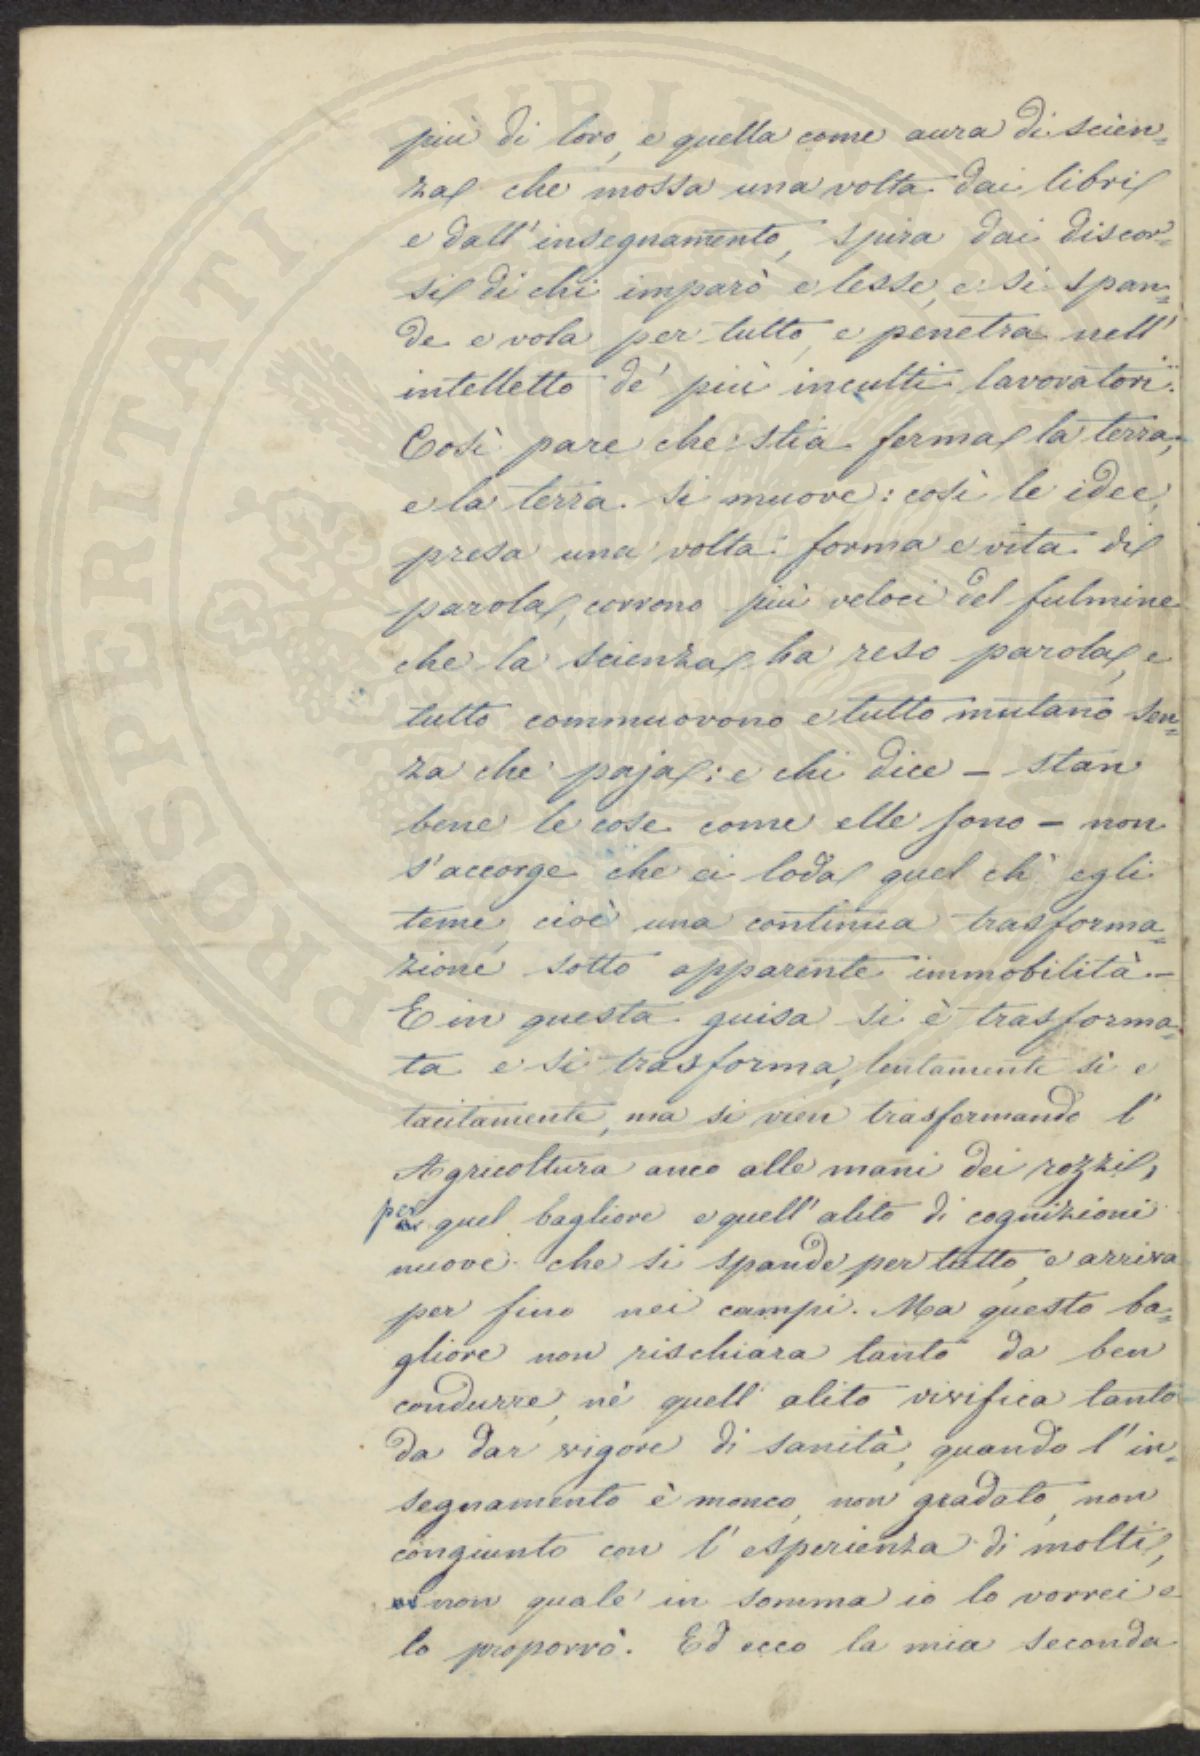 più di loro, e quella come aura di scien=
za che mossa una volta dai libri
e dall'insegnamento, spira dai discor=
si di chi imparò e lesse, e si span=
de e vola per tutto, e penetra nell'
intelletto de' più inculti lavoratori.
Così pare che stia ferma la terra,
e la terra si muove: così le idee,
presa una volta forma e vita di
parola, corrono più veloci del fulmine
che la scienza ha reso parola, e
tutto commuovono e tutto mutano sen=
za che paja: e chi dice - stan
bene le cose come elle sono - non
s'accorge che ei loda quel ch' egli
teme, cioè una continua trasforma=
zione sotto apparente immobilità. -
E in questa guisa si è trasforma=
ta e si trasforma, lentamente sì e
tacitamente, ma si vien trasformando l'
Agricoltura anco alle mani dei rozzi,
per quel bagliore e quell'alito di cognizioni
nuove che si spande per tutto, e arriva
per fino nei campi. Ma questo ba=
gliore non rischiara tanto da ben
condurre, nè quell' alito vivifica tanto
da dar vigore di sanità, quando l'in=
segnamento è monco, non gradato, non
congiunto con l' esperienza di molti,
non quale in somma io lo vorrei e
lo proporrò. Ed ecco la mia seconda
PROSPERITATI PVBLICAE